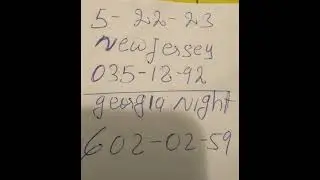 5-22-23
New Jersey
035-18-92
georgia Night
602-02-59